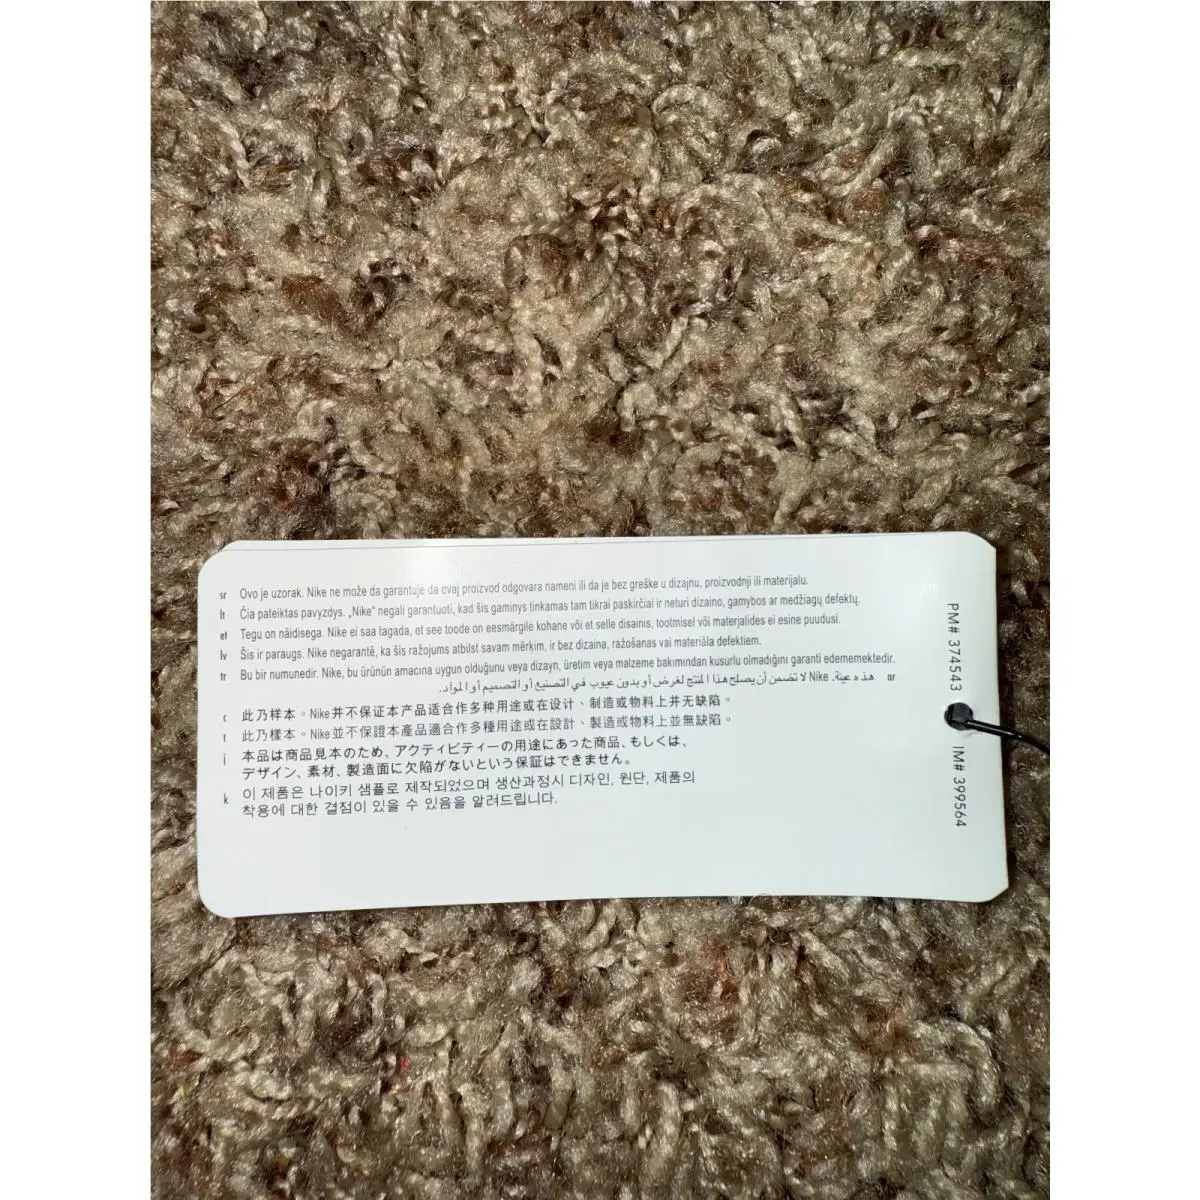 sr Ovo je uzorak. Nike ne može da garantuje da ovaj proizvod odgovara nameni ili da je bez greške u dizajnu, proizvodnji ili materijalu.
lt Čia pateiktas pavyzdys. „Nike" negali garantuoti, kad šis gaminys tinkamas tam tikrai paskirčiai ir neturi dizaino, gamybos ar medžiagų defektų.
et Tegu on näidisega. Nike ei saa tagada, et see toode on eesmärgile kohane või et selle disainis, tootmisel või materjalides ei esine puudusi.
lv Šis ir paraugs. Nike negarantē, ka šis ražojums atbilst savam mērķim, ir bez dizaina, ražošanas vai materiāla defektiem.
tr Bu bir numunedir. Nike, bu ürünün amacına uygun olduğunu veya dizayn, üretim veya malzeme bakımından kusurlu olmadığını garanti edememektedir.
ar هذه عينة. Nike لا تضمن أن يصلح هذا المنتج لغرض أو بدون عيوب في التصنيع أو التصميم أو المواد.
c 此乃样本。Nike并不保证本产品适合作多种用途或在设计、制造或物料上并无缺陷。
t 此乃樣本。Nike並不保證本產品適合作多種用途或在設計、製造或物料上並無缺陷。
j 本品は商品見本のため、アクティビティーの用途にあった商品、もしくは、
デザイン、素材、製造面に欠陥がないという保証はできません。
k 이 제품은 나이키 샘플로 제작되었으며 생산과정시 디자인, 원단, 제품의
착용에 대한 결점이 있을 수 있음을 알려드립니다.
PM# 374543
IM# 399564